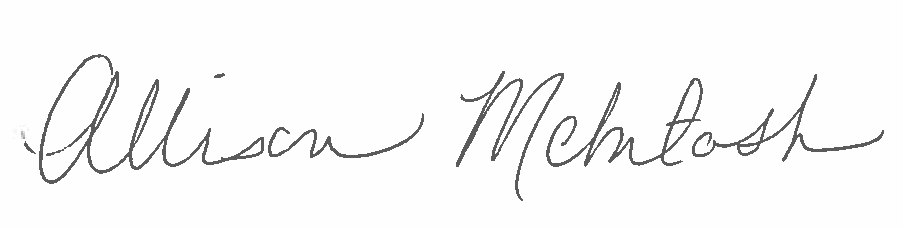 Allison McIntosh